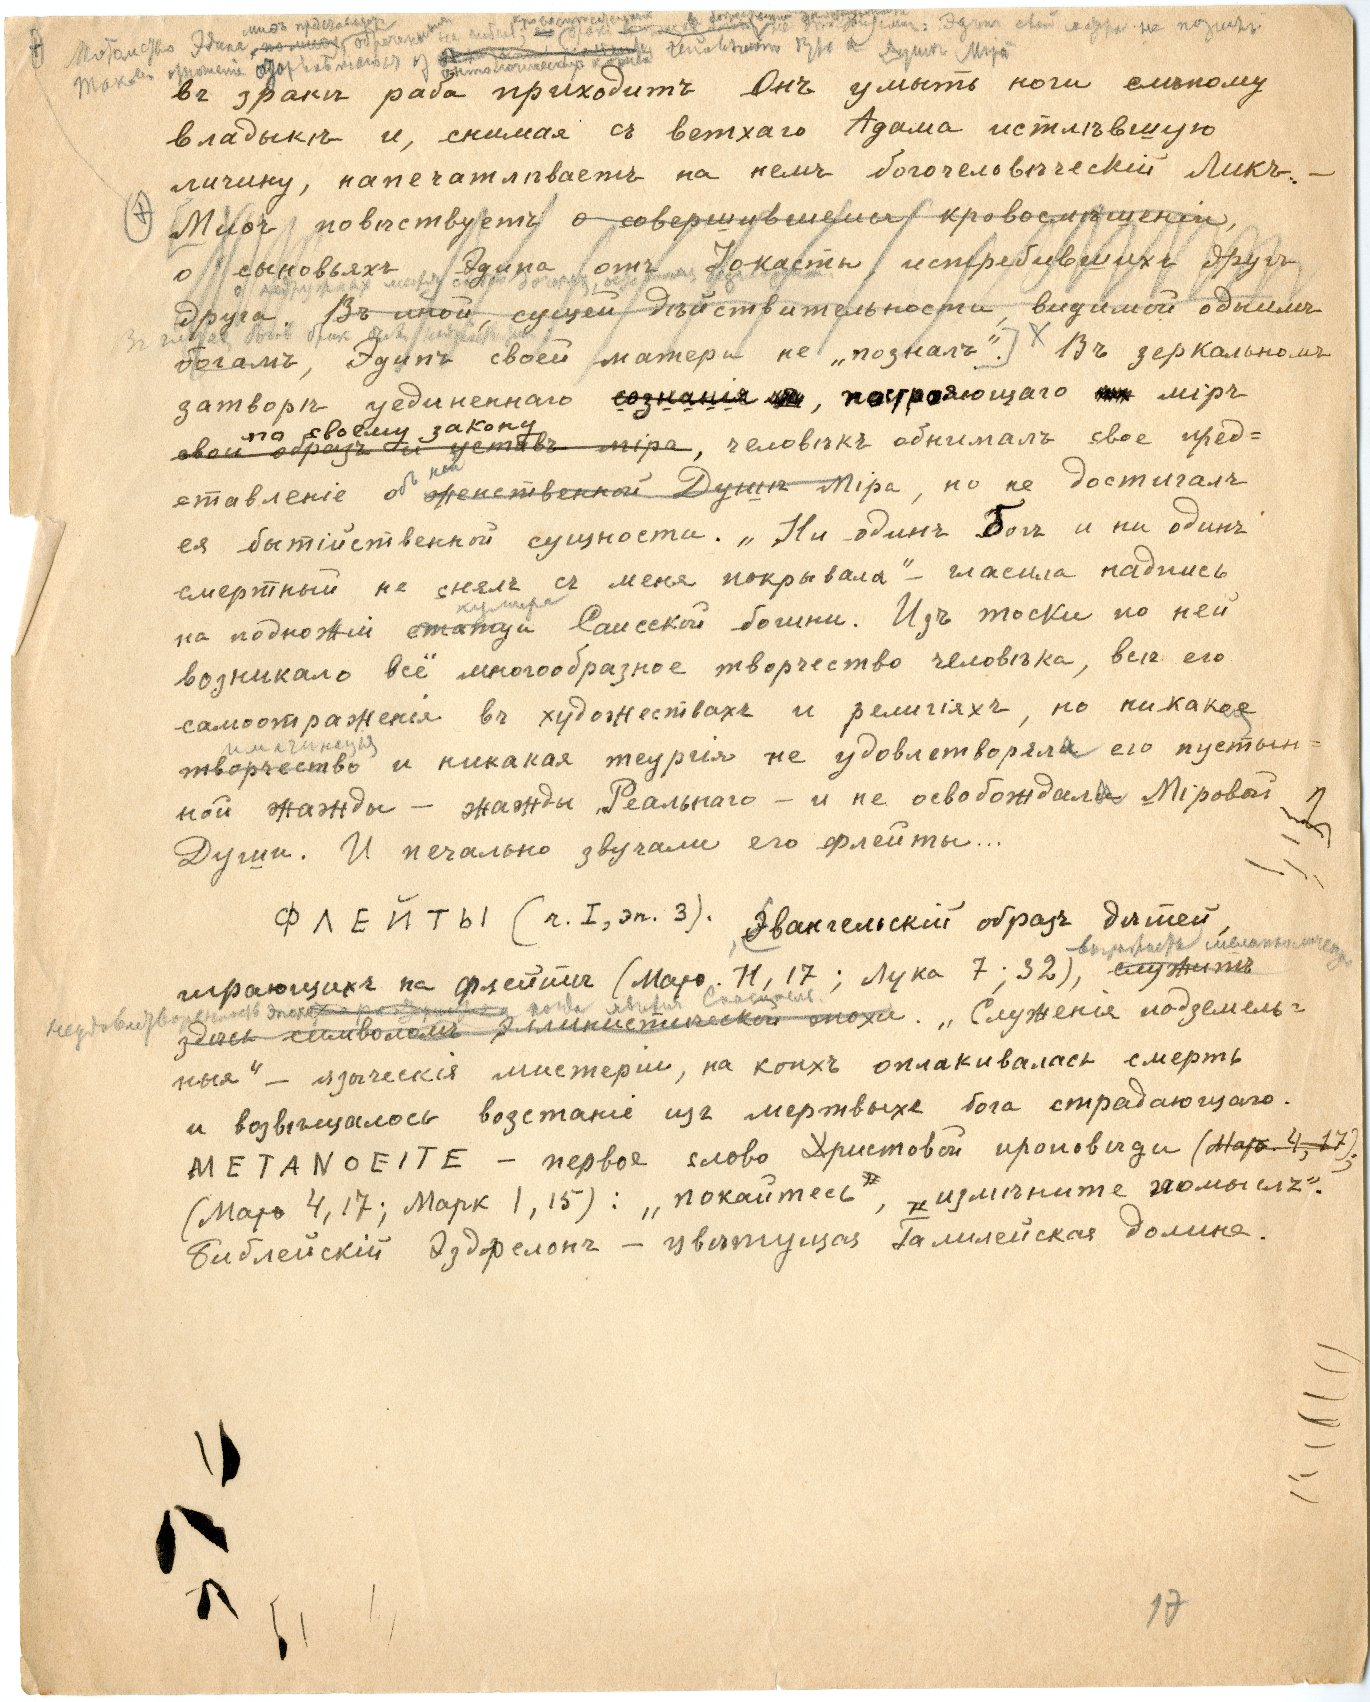 Потомство Эдипа
въ зракѣ раба приходитъ Онъ умыть ноги слѣпому
владыкѣ и, снимая съ ветхаго Адама истлѣвшую
личину, напечатлѣваетъ на немъ богочеловѣческій Ликъ. –
Миѳъ повѣствуетъ о совершившемся кровосмѣшеніи,
о сыновьяхъ Эдипа отъ Іокасты, истребившихъ другъ
друга. Въ иной, сущей дѣйствительности, видимой однимъ
богамъ, Эдипъ своей матери не „позналъ“.] X Въ зеркальномъ
затворѣ уединеннаго сознанія, построяющаго міръ
по своему закону
свой образъ и уставъ міра, человѣкъ обнималъ свое пред=
ней
ставленіе объ женственной Душѣ Міра, но не достигалъ
ея бытійственной сущности. „Ни одинъ Богъ и ни одинъ
смертный не снялъ съ меня покрывала“ – гласила надпись
кумира
на подножіи статуи Саисской богини. Изъ тоски по ней
возникало всё многообразное творчество человѣка, всѣ его
самоотраженія въ художествахъ и религіяхъ, но никакое
имагинація
творчество и никакая теургія не удовлетворяли его пустын=
ной жажды – жажды Реальнаго – и не освобождали Міровой
Души. И печально звучали его флейты...
ФЛЕЙТЫ (ч. I, эп. 3). Эвангельскій образъ дѣтей,
играющихъ на флейтѣ (Матѳ. 11, 17; Лука 7; 32), служитъ
неудовлетворенность когда явился Спаситель.
здѣсь символомъ эллинистической эпохи. „Служенія подземель=
ныя“ – языческія мистеріи, на коихъ оплакивалась смерть
и возвѣщалось возстаніе изъ мертвыхъ бога страдающаго.
METANOEITE – первое слово Христовой проповѣди (Матѳ. 4, 17);
(Матѳ 4, 17; Марк 1, 15): „покайтесь“, „измѣните помыслъ“.
Библейскій Эздрелонъ – цвѣтущая Галилейская долина.
17